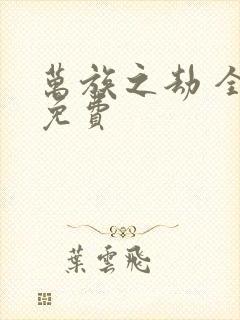 萬族之劫 全
免費
葉雲飛